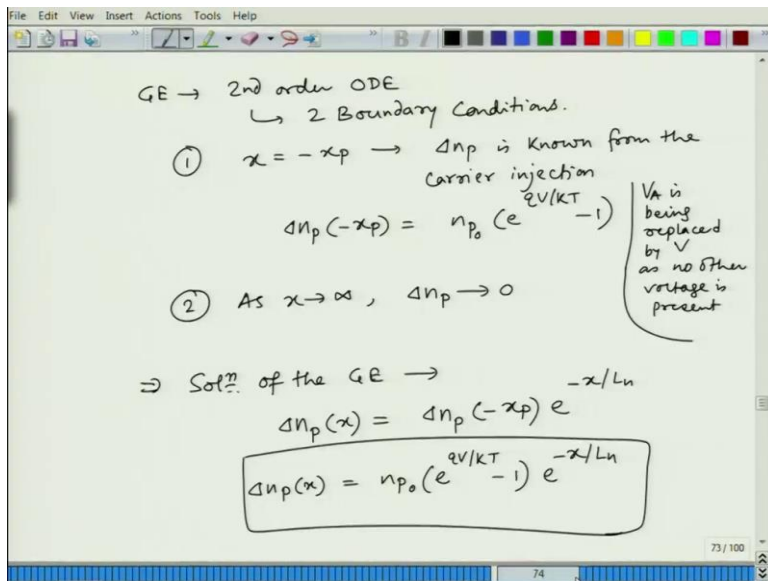 File Edit View Insert Actions Tools Help
GE → 2nd order ODE
↳ 2 Boundary Conditions.
① x = -xp → Δnp is known from the
carrier injection
Δnp(-xp) = np₀ (e^qV/KT - 1)
VA is
being
replaced
by V
as no other
voltage is
present
② As x → ∞, Δnp → 0
⇒ Solⁿ. of the GE →
Δnp(x) = Δnp(-xp) e^-x/Ln
Δnp(x) = np₀ (e^qV/KT - 1) e^-x/Ln
73 / 100
74